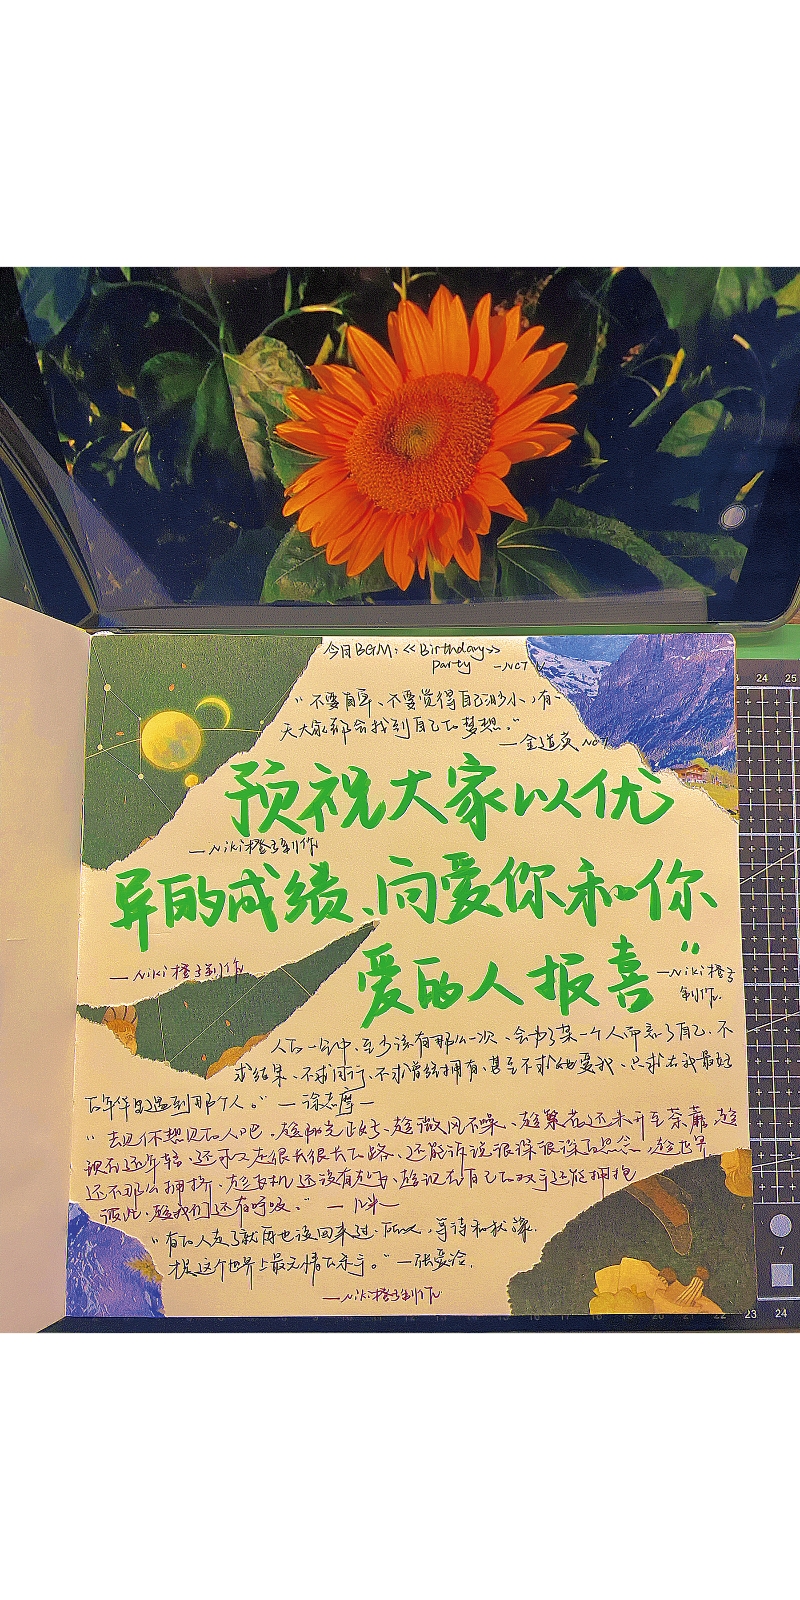 今日BGM:《Birthday
Party》 —NCT U
“不要自卑、不要觉得自己渺小,有一
天大家都会找到自己的梦想。”
—金道英 NCT
预祝大家以优
—Niki橙子制作
异的成绩、向爱你和你
—Niki橙子制作
爱的人报喜”
—Niki橙子
制作.
人的一生中、至少该有那么一次、会为了某一个人而忘了自己、不
求结果、不求同行、不求曾经拥有、甚至不求她爱我、只求在我最好
的年华里遇到那个人。” —徐志摩—
“去见你想见的人吧、趁阳光正好、趁微风不噪、趁繁花还未开至荼蘼、趁
现在还年轻、还可以走很长很长的路、还能诉说很深很深的思念、趁世界
还不那么拥挤、趁飞机还没有起飞、趁现在自己的双手还能拥抱
彼此、趁我们还有呼吸。” —几米—
“有的人走了就再也没回来过、所以、等待和犹豫.
才是这个世界上最无情的杀手。” —张爱玲.
—Niki橙子制作
24 25
7
22 23 24